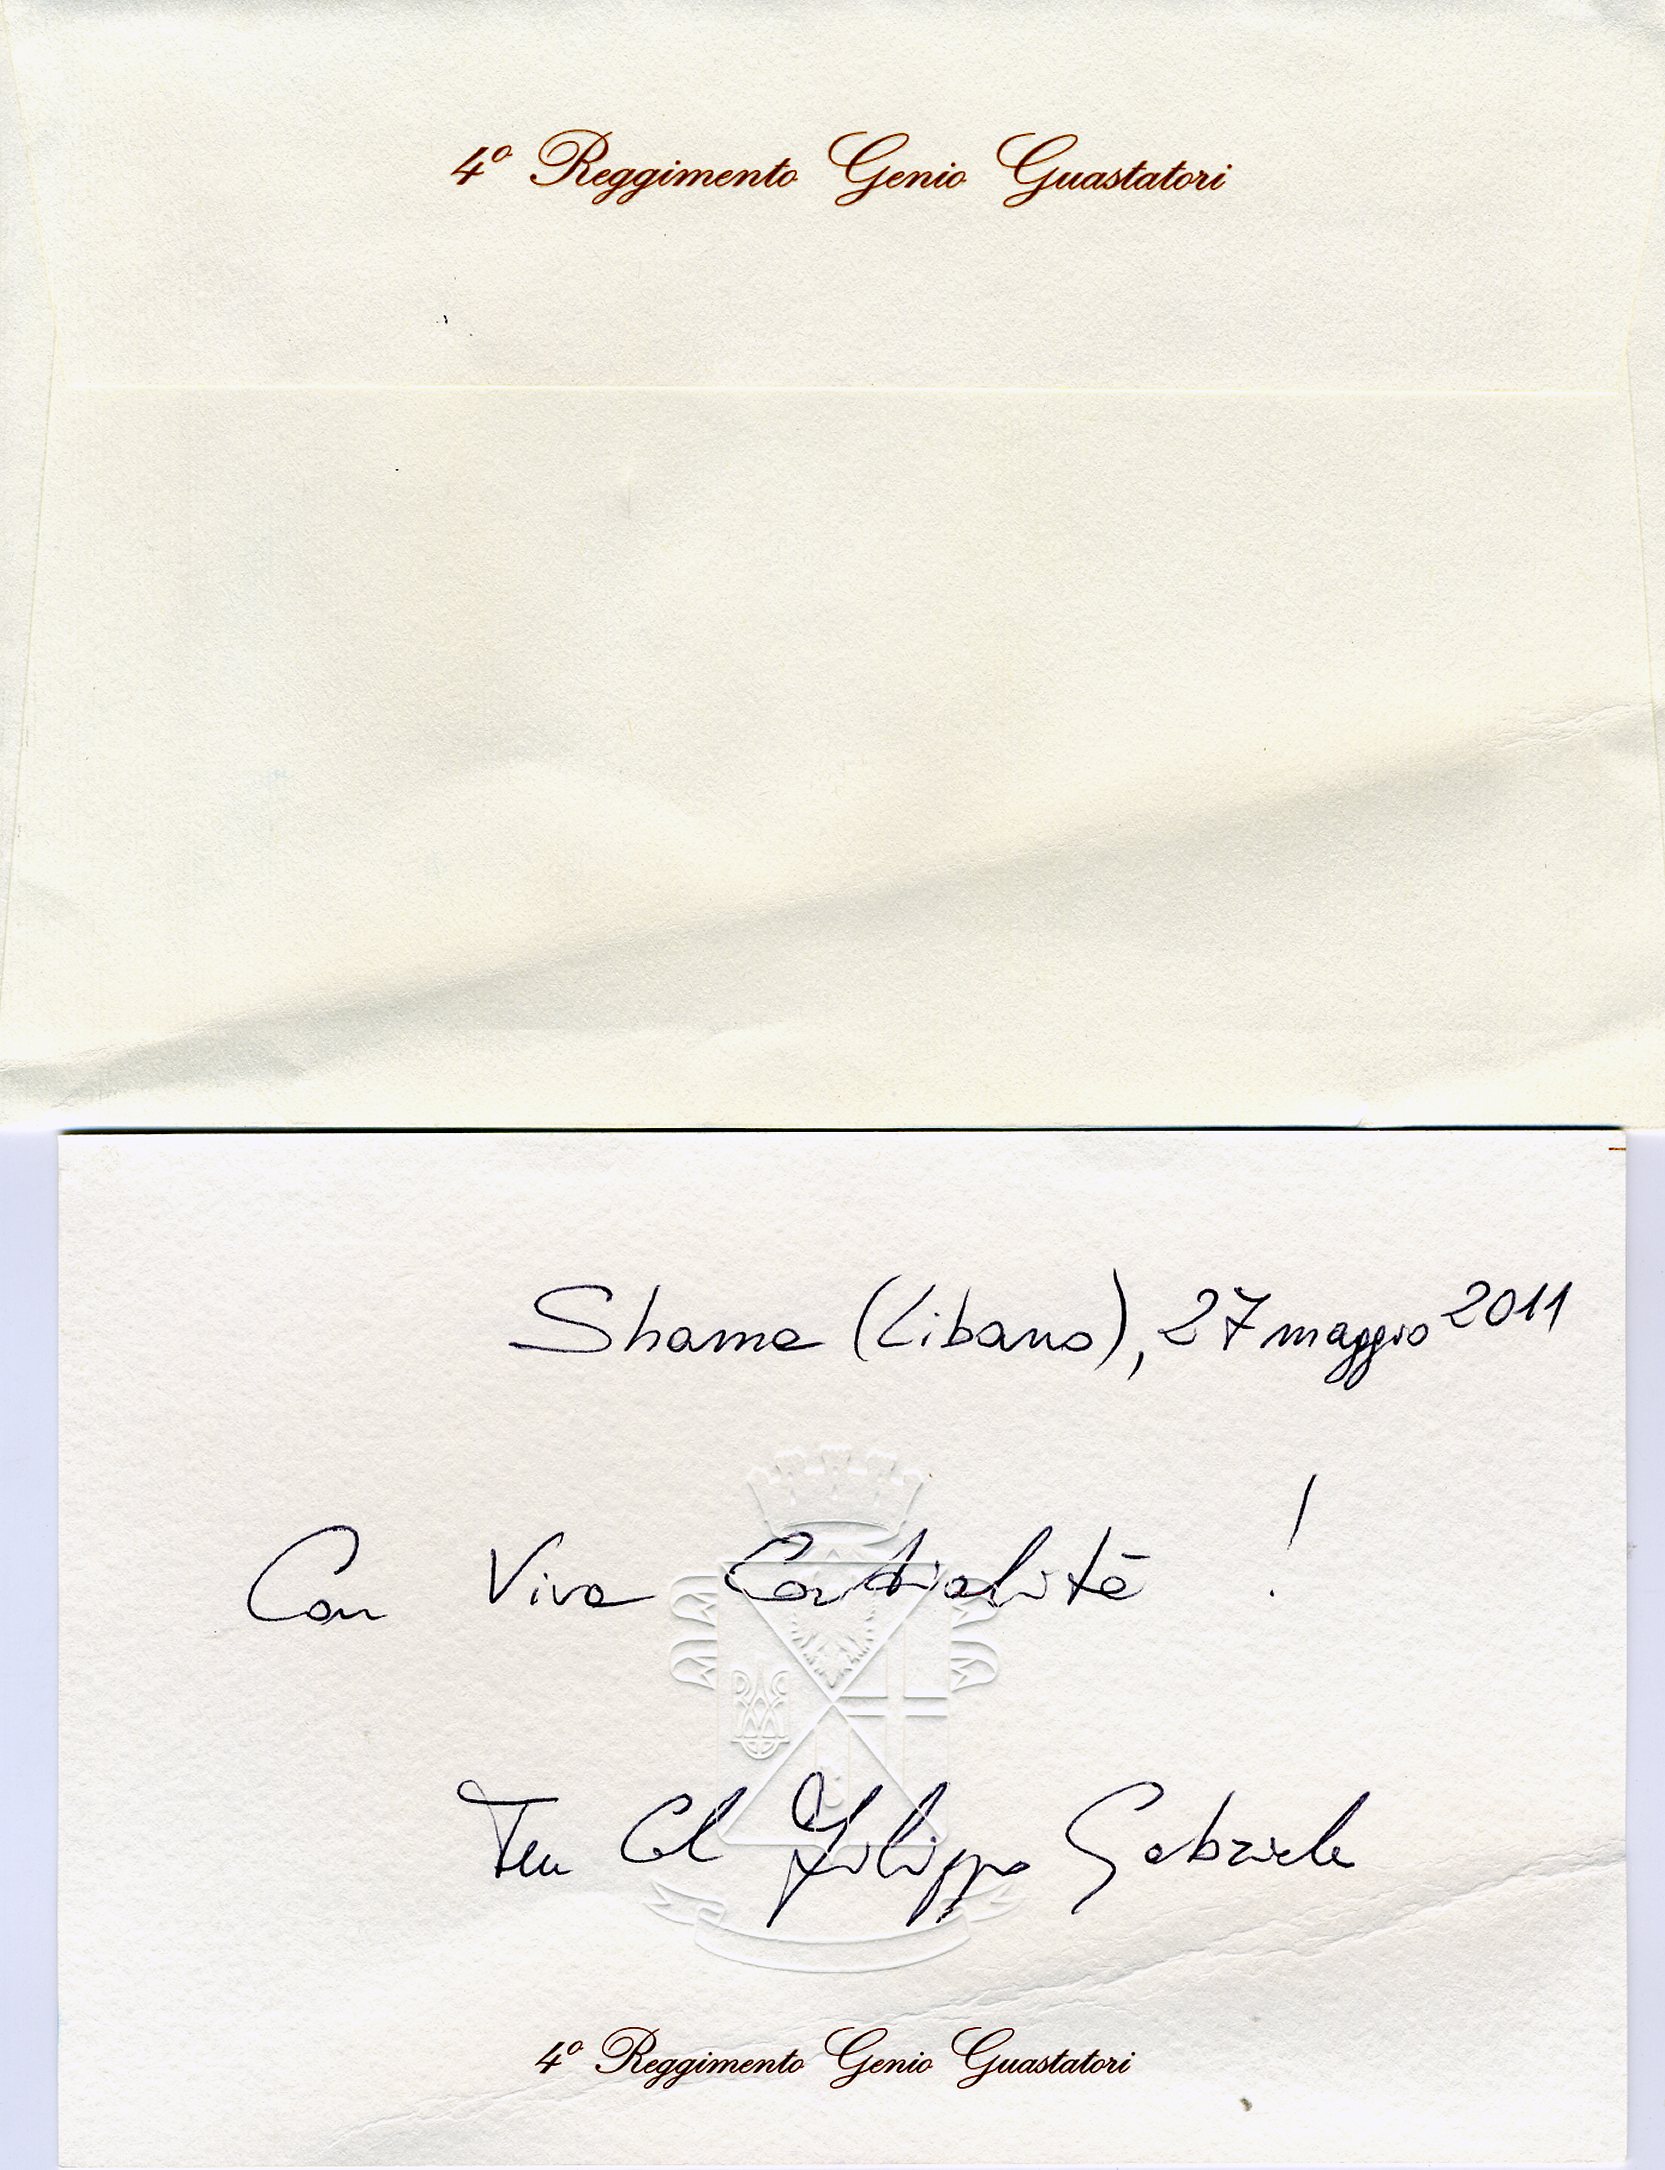 4º Reggimento Genio Guastatori
Shama (Libano), 27 maggio 2011
Con Viva Cordialità !
Ten Col Filippo Gabriele
4º Reggimento Genio Guastatori